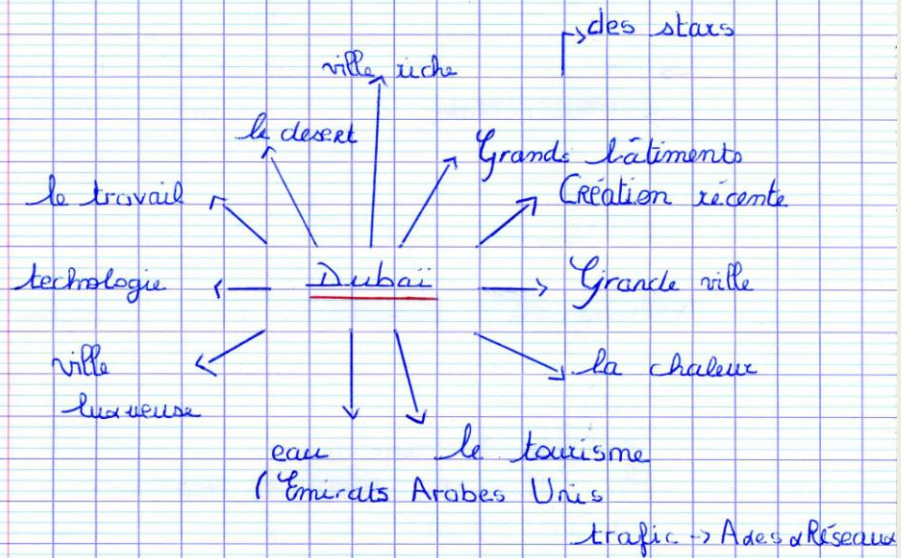 des stars
ville riche
le desert
Grands bâtiments
le travail
Création récente
technologie
Dubaï
Grande ville
ville
luxueuse
la chaleur
eau
le tourisme
(Emirats Arabes Unis
trafic -> Axes & Réseaux